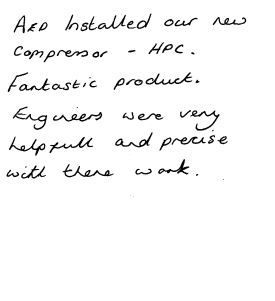 AED Installed our new
compressor - HPC.
Fantastic product.
Engineers were very
helpfull and precise
with there work.